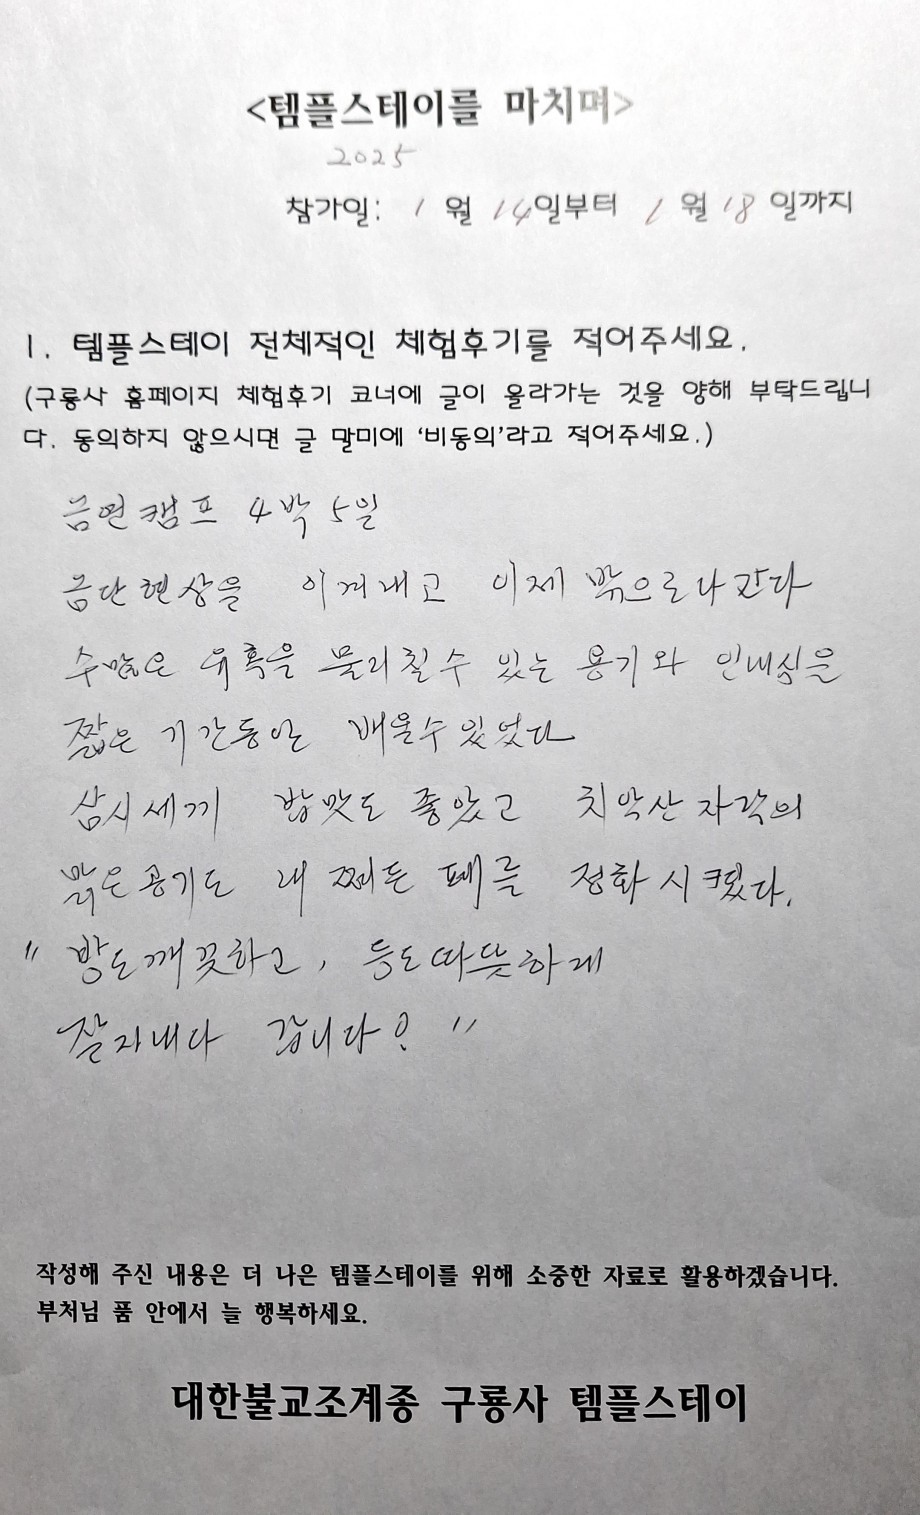 <템플스테이를 마치며>
2025
참가일: 1 월 14일부터 1 월 18 일까지
1. 템플스테이 전체적인 체험후기를 적어주세요.
(구룡사 홈페이지 체험후기 코너에 글이 올라가는 것을 양해 부탁드립니
다. 동의하지 않으시면 글 말미에 '비동의'라고 적어주세요.)
금연캠프 4박 5일
금단현상을 이겨내고 이제 밖으로 나간다
수많은 유혹을 물리칠수 있는 용기와 인내심을
짧은 기간동안 배울수 있었다
삼시세끼 밥맛도 좋았고 치악산 자락의
맑은공기도 내 찌든 폐를 정화 시켰다.
" 방도깨끗하고, 등도따뜻하게
잘지내다 갑니다? "
작성해 주신 내용은 더 나은 템플스테이를 위해 소중한 자료로 활용하겠습니다.
부처님 품 안에서 늘 행복하세요.
대한불교조계종 구룡사 템플스테이